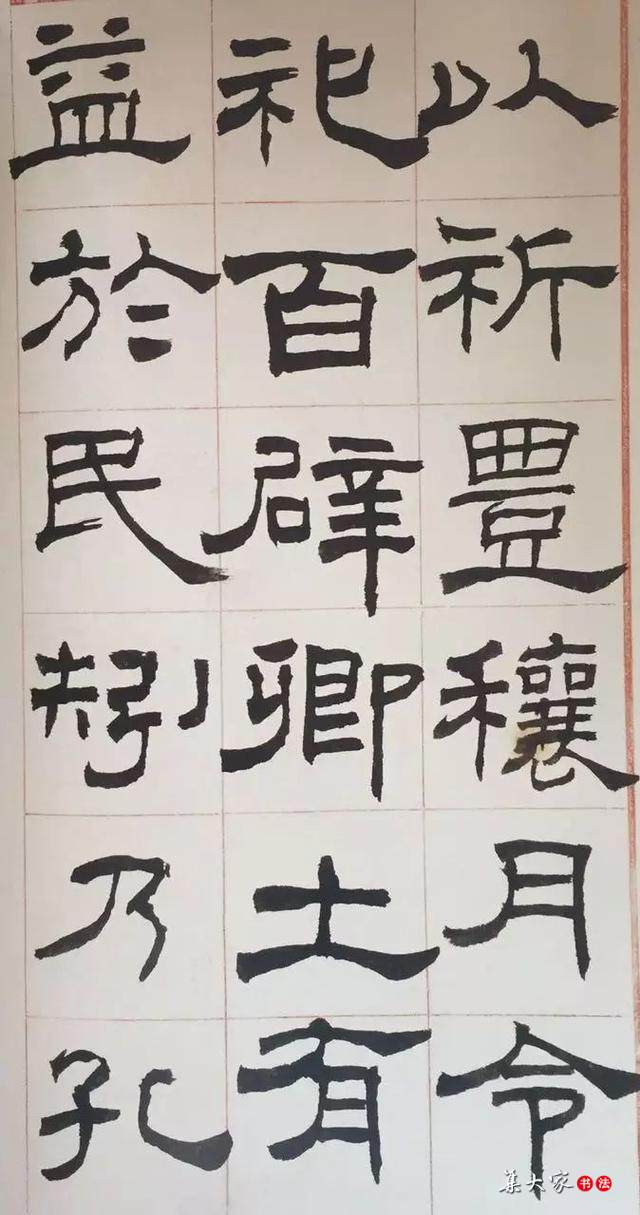 以祈豊穰月令
祀百辟卿士有
益於民矧乃孔
集大家书法